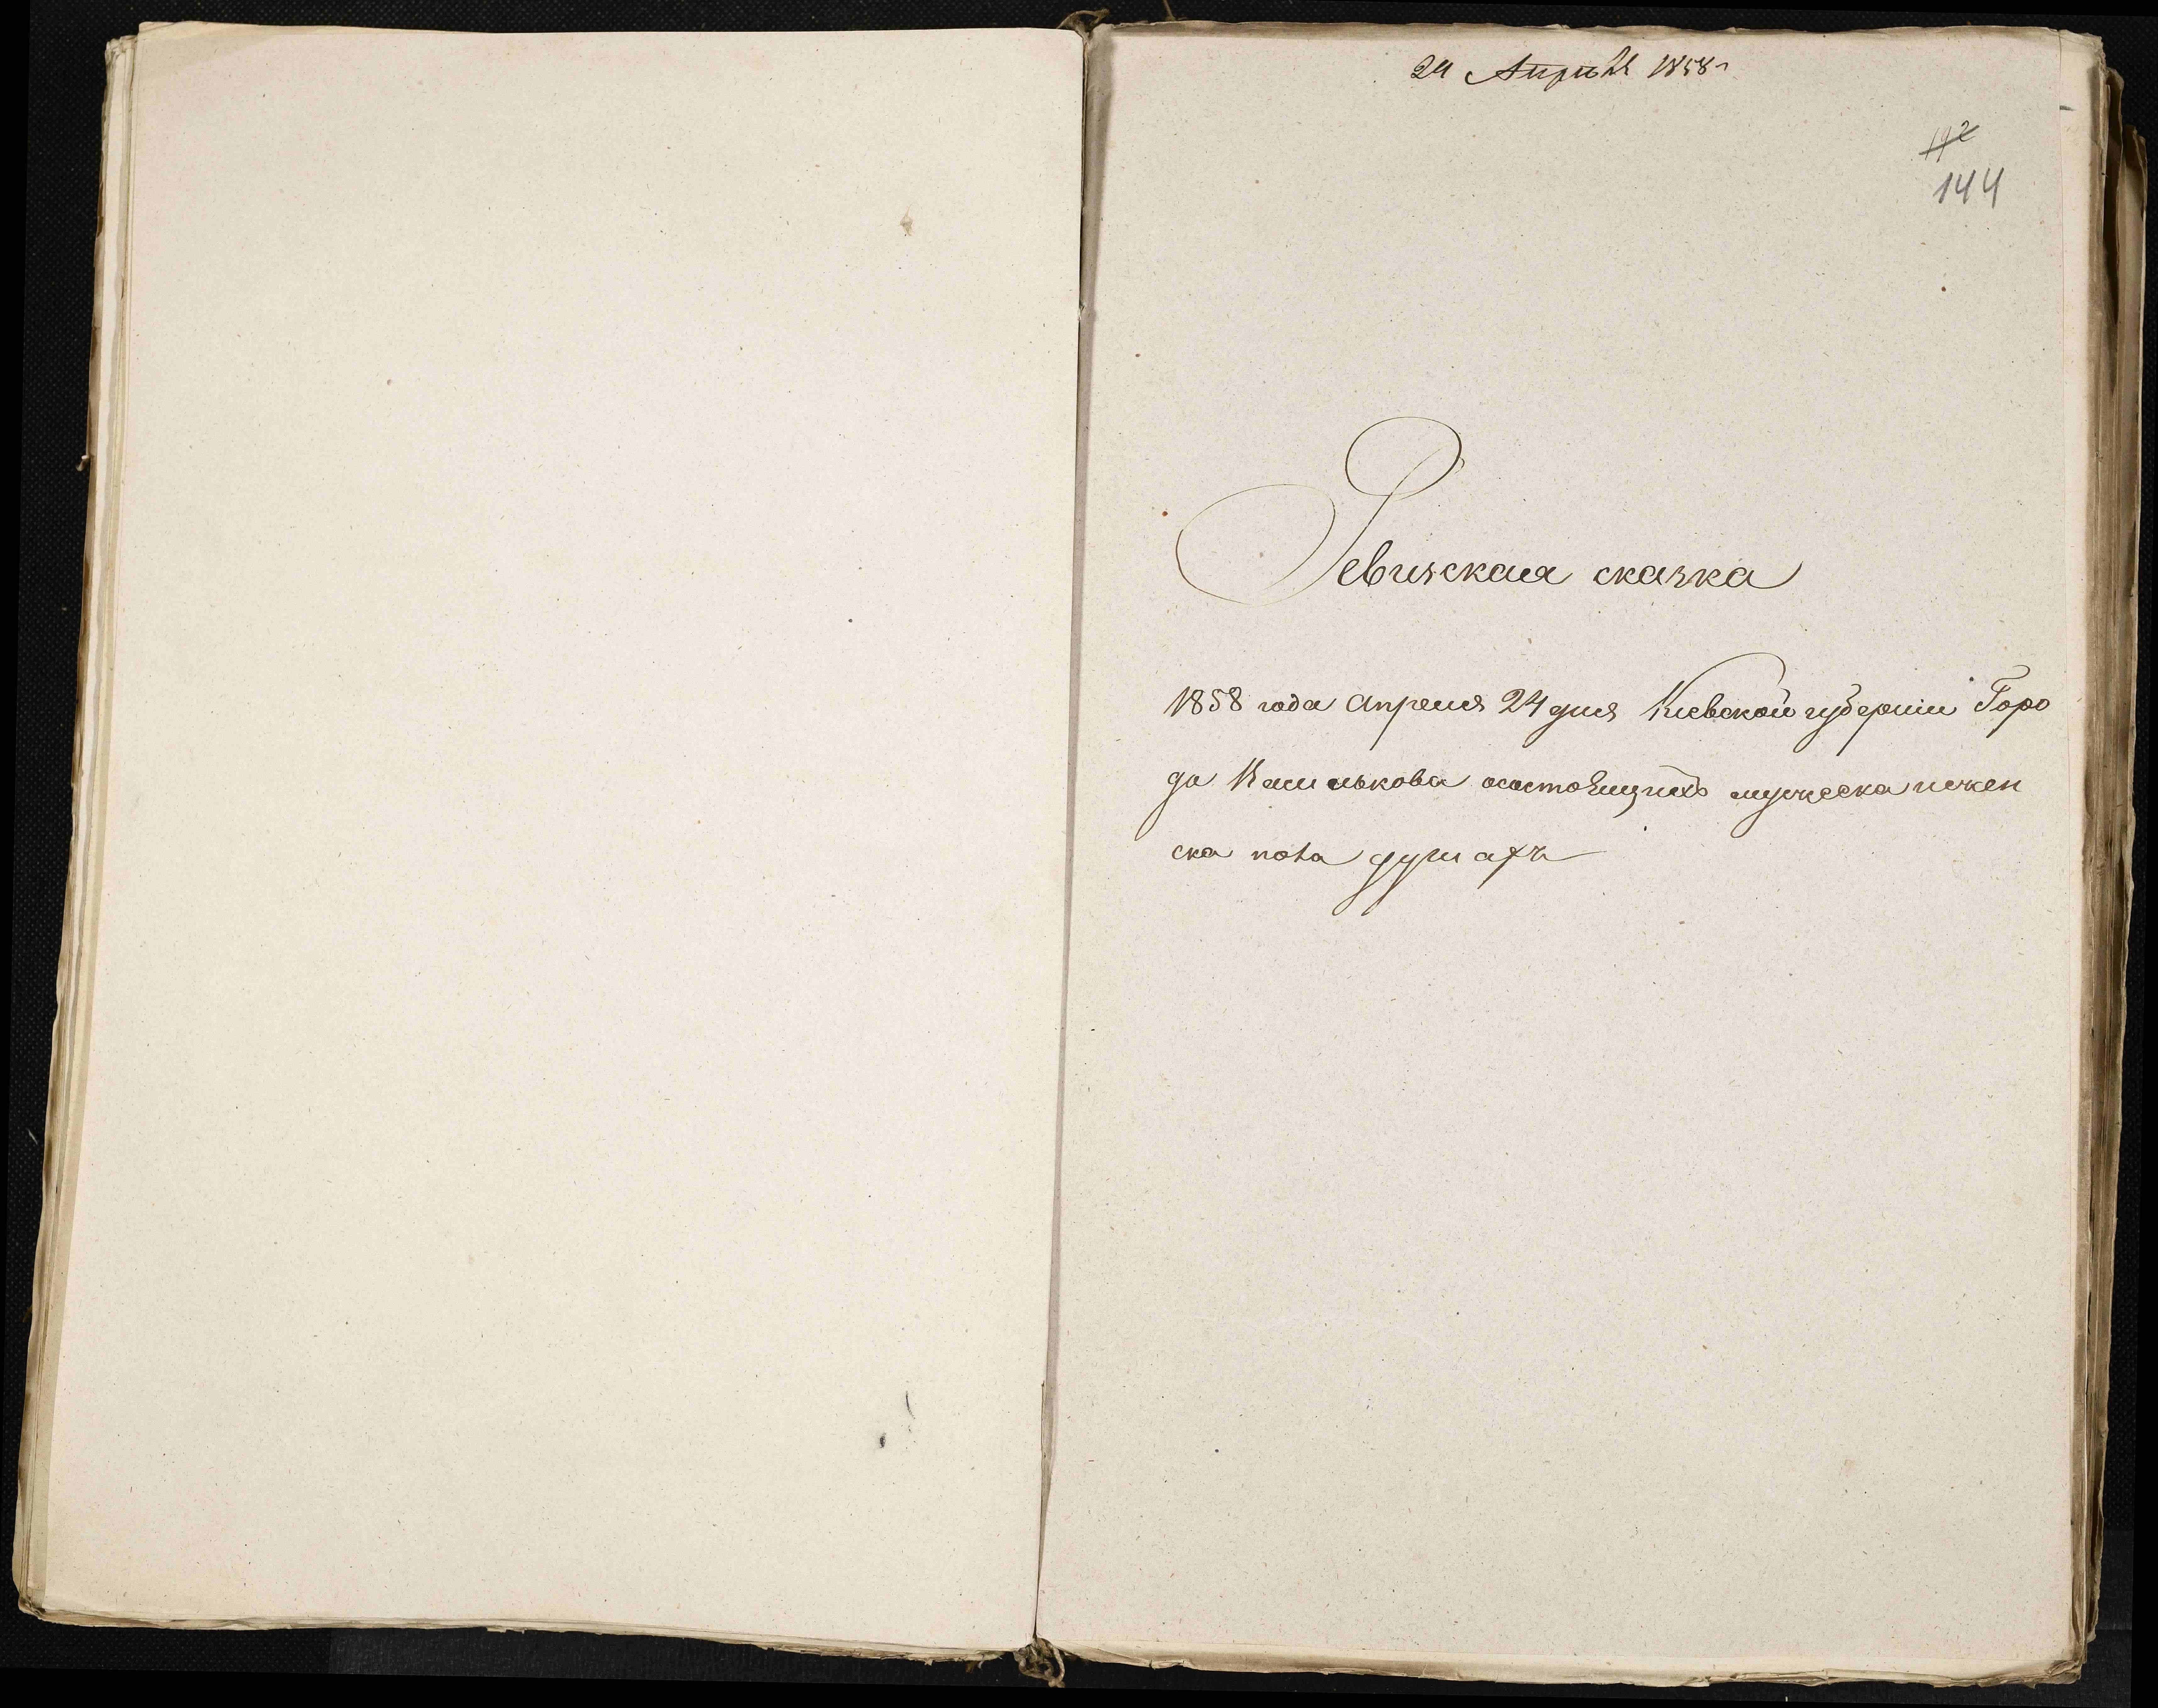 24 Апрѣля 1858 г
144
Ревизская сказка
1858 года Апреля 24 дня Киевской губернии Горо
да Василькова осостоящихъ мужеска ижен
ска пола душахъ